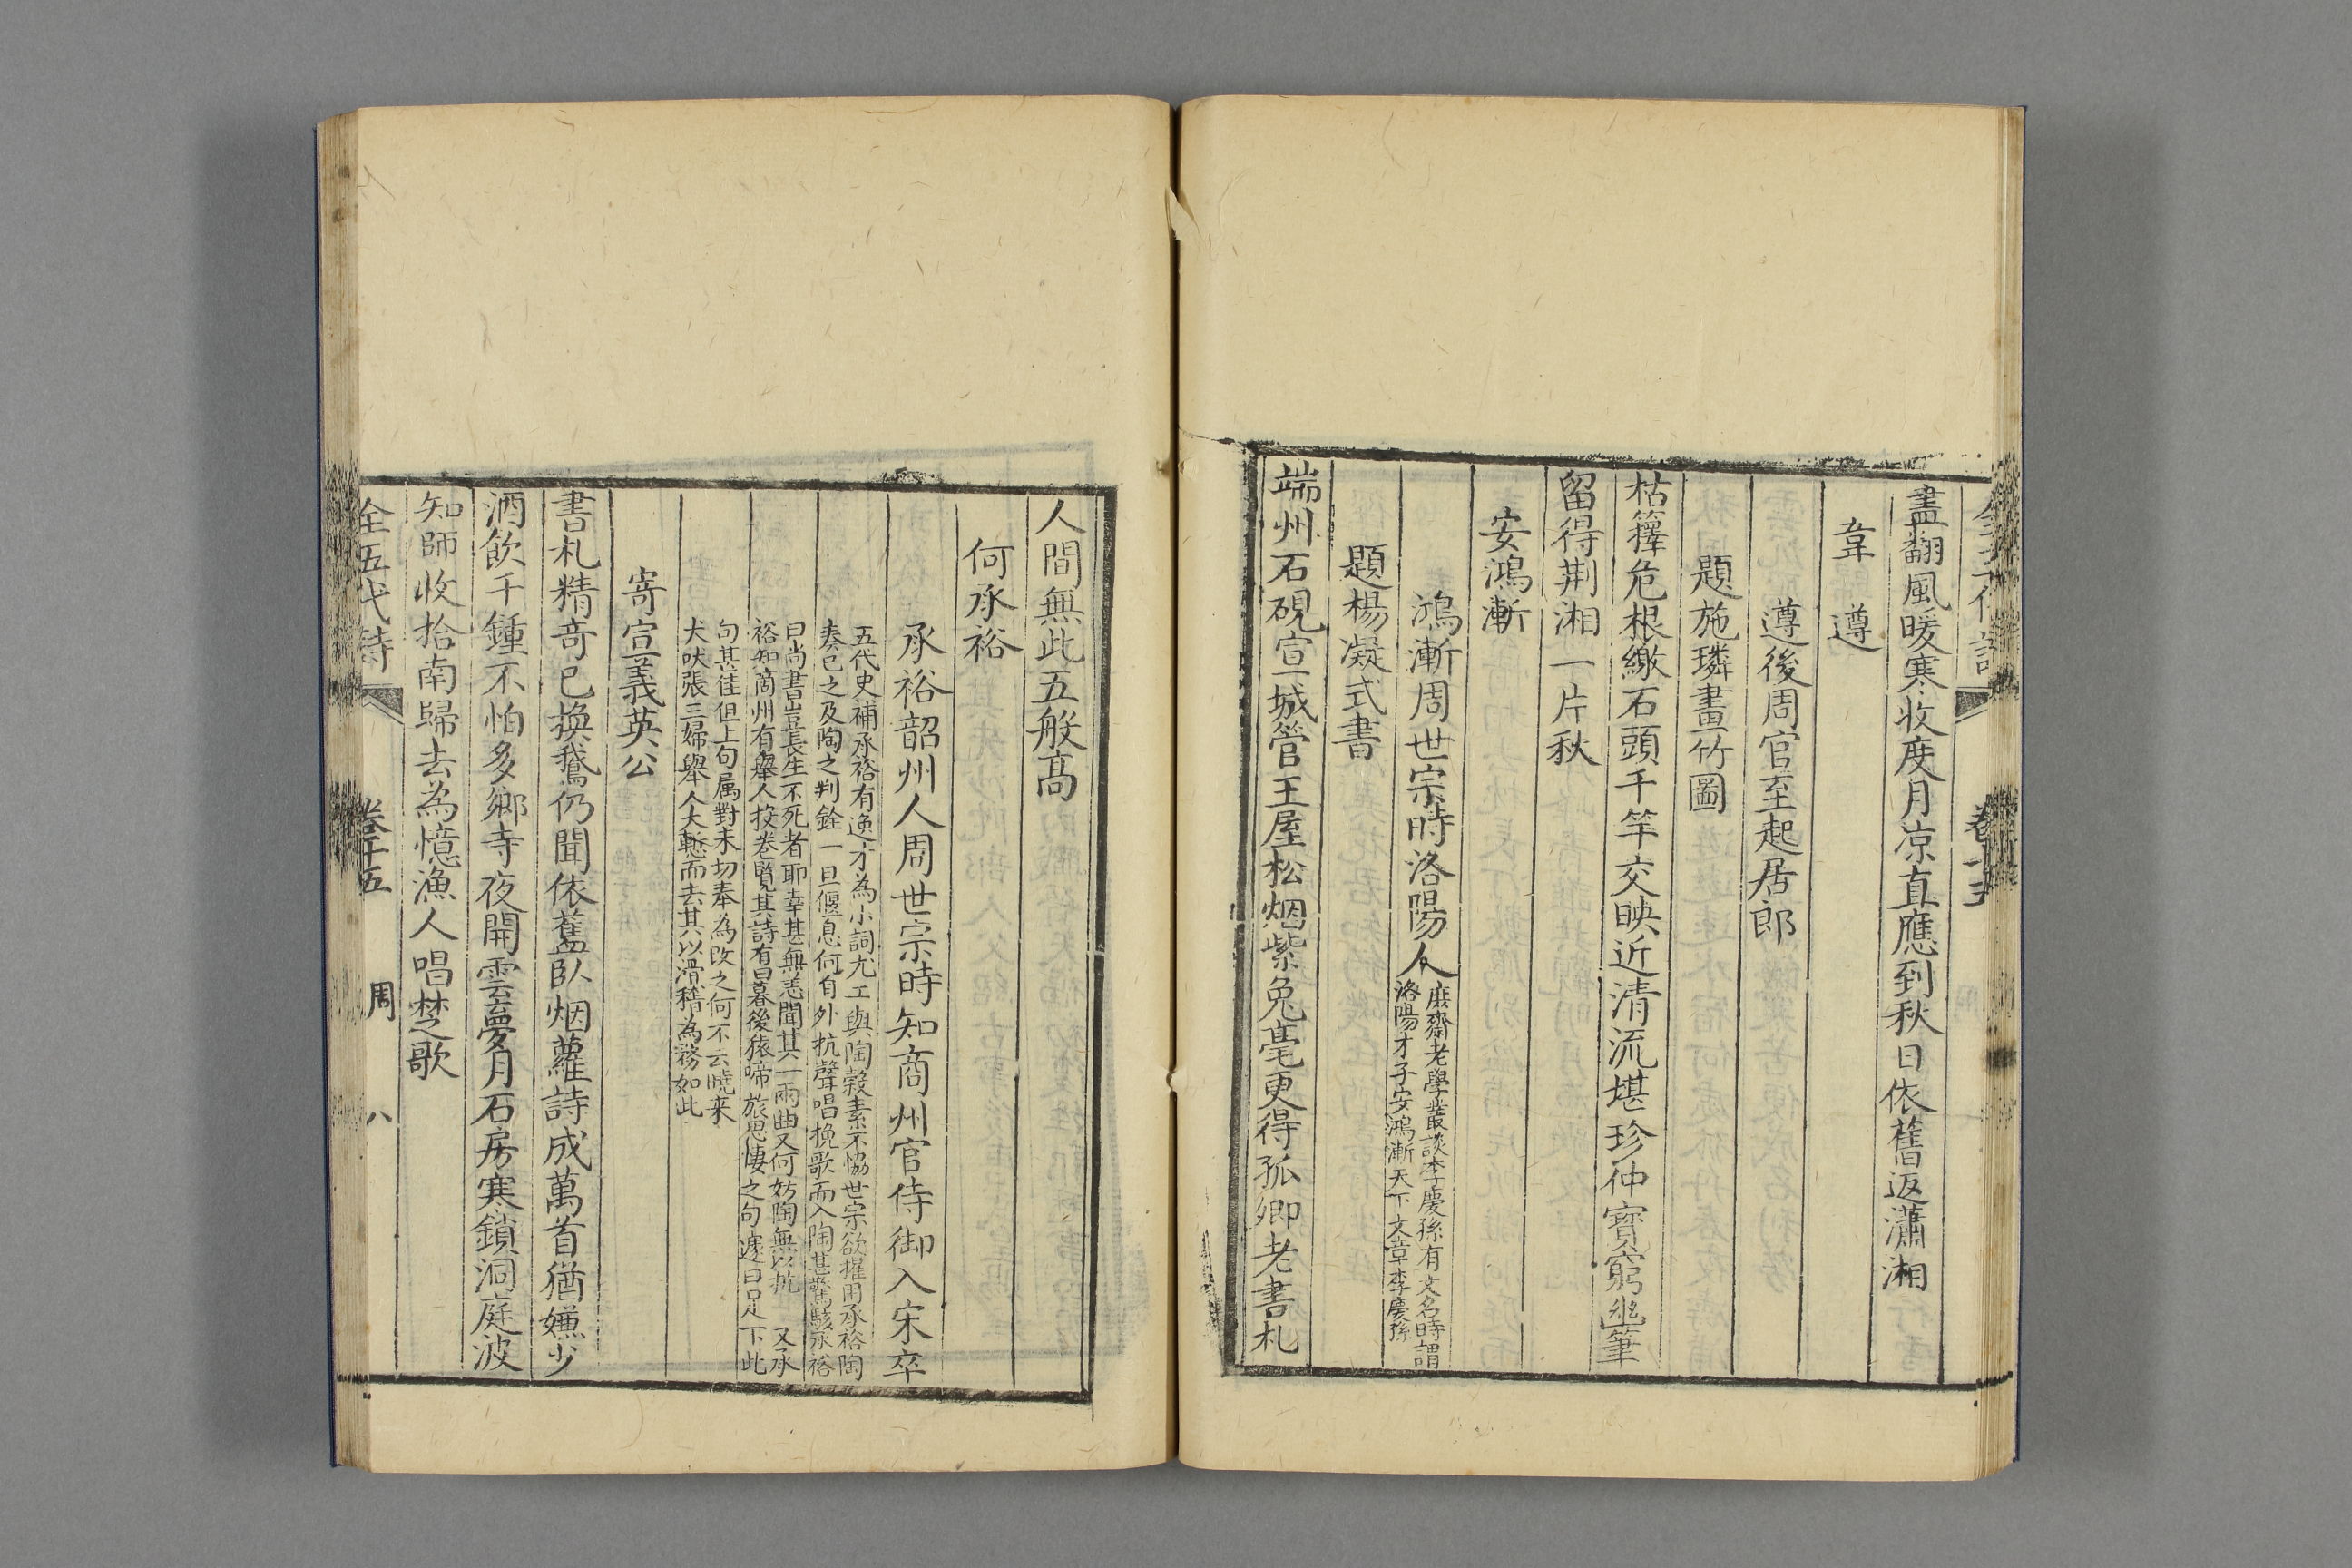 全五代詩 卷十五
盡翻風暖寒收度月凉直應到秋日依舊返瀟湘
韋遵
遵後周官至起居郎
題施璘畫竹圖
枯籜危根繳石頭千竿交映近清流堪珍仲寶窮幽筆
留得荆湘一片秋
安鴻漸
鴻漸周世宗時洛陽人
庶齋老學叢談李慶孫有文名時謂
洛陽才子安鴻漸天下文章李慶孫
題楊凝式書
端州石硯宣城管王屋松烟紫兔毫更得孤卿老書札
人間無此五般髙
何承裕
承裕韶州人周世宗時知商州官侍御入宋卒
五代史補承裕有逸才為小詞尤工與陶穀素不恊世宗欲擢用承裕陶
奏已之及陶之判銓一旦偃息何自外抗聲唱挽歌而入陶甚驚駭承裕
曰尚書豈長生不死者耶幸甚無恙聞其一兩曲又何妨陶無以抗 又承
裕知商州有舉人投卷覽其詩有曰暮後猿啼旅思悽之句遽曰足下此
句甚佳但上句属對未切奉為改之何不云曉来
犬吠張三婦舉人大慙而去其以滑稽為務如此
寄宣義英公
書札精竒已換鵞仍聞依舊臥烟蘿詩成萬首猶嫌少
酒飲千鍾不怕多鄉寺夜開雲夢月石房寒鎖洞庭波
知師收拾南歸去為憶漁人唱楚歌
全五代詩 卷十五 周 八